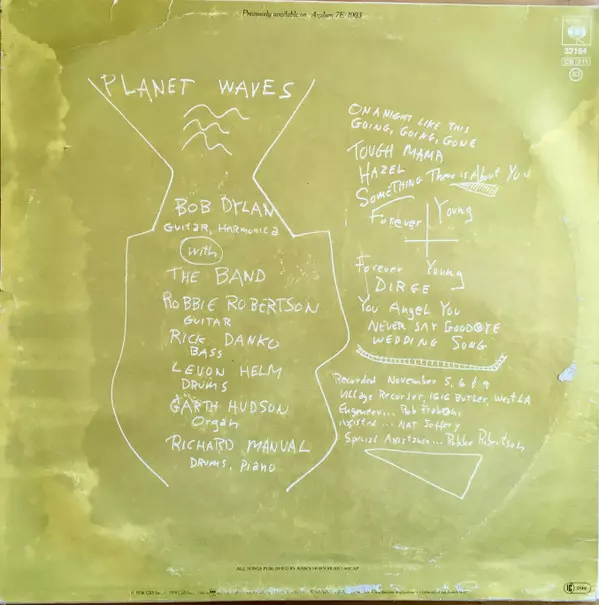 Previously available on Asylum 7E 1003
CBS
32154
CB 211
PLANET WAVES
BOB DYLAN
GUITAR, HARMONICA
with
THE BAND
ROBBIE ROBERTSON
GUITAR
RICK DANKO
BASS
LEVON HELM
DRUMS
GARTH HUDSON
Organ
RICHARD MANUAL
DRUMS, Piano
ON A NIGHT LIKE THIS
GOING, GOING, GONE
TOUGH MAMA
HAZEL
SOMETHING There is About You
Forever Young
Forever Young
DIRGE
You Angel You
NEVER SAY GOODBYE
WEDDING SONG
Recorded November 5, 6 & 9
Village Recorder, 1616 Butler, West LA
Engineer... Rob Fraboni
Assisted... NAT Jeffery
Special Assistance... Robbie Robertson
ALL SONGS PUBLISHED BY RAM'S HORN MUSIC (ASCAP)